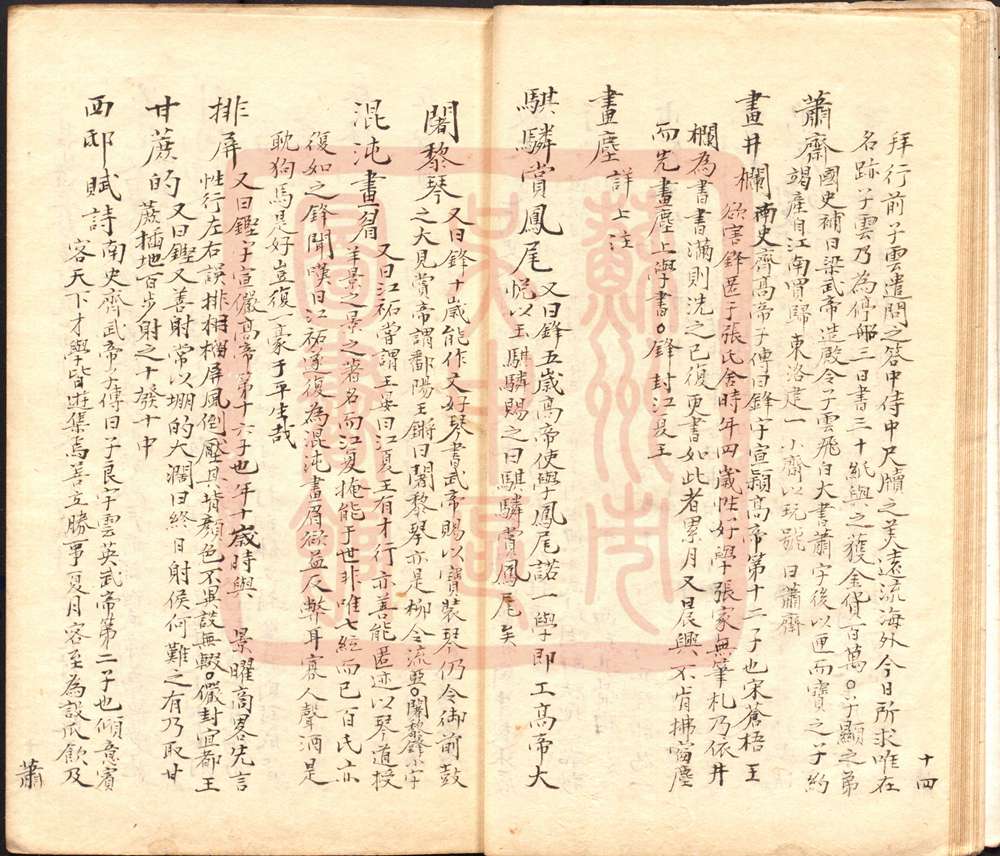 十四
拜行前子雲遣問之答中侍中尺牘之美遠流海外今日所求唯在
名跡子雲乃為停船三日書三十紙與之獲金貨百萬○子顯之弟
蕭齋國史補曰梁武帝造殿令子雲飛白大書蕭字後以匣而寶之子約
竭產自江南買歸東洛建一小齋以玩號曰蕭齋
畫井欄南史齊高帝子傳曰鋒字宣穎高帝第十二子也宋蒼梧王
欲害鋒匿于張氏舍時年四歲性好學張家無筆札乃依井
欄為書書滿則洗之已復更書如此者累月又晨興不肯拂窗塵
而先畫塵上學書○鋒封江夏王
畫塵詳上注
騏驎賞鳳尾又曰鋒五歲高帝使學鳳尾諾一學即工高帝大
悅以玉騏驎賜之曰騏驎賞鳳尾矣
闍黎琴又曰鋒十歲能作又好琴書武帝賜以寶裝琴仍令御前鼓
之大見賞帝謂鄱陽王鏘曰闍黎琴亦是柳令流亞○闍黎鋒小字
混沌畫眉又曰江祏嘗謂王晏曰江夏王有才行亦善能匿迹以琴道授
羊景之景之著名而江夏掩能于世非唯七絃而已百氏亦
復如之鋒聞嘆曰江祏遂復為混沌畫眉欲益反弊耳寡人聲酒是
耽狗馬是好豈復一豪于平生哉
排屏又曰鏗字宣儼高帝第十六子也年十歲時與 景曜商畧先言
性行左右誤排柟榴屏風倒壓其背顏色不異談無輟○儼封宜都王
甘蔗的又曰鏗又善射常以堋的大濶曰終日射侯何難之有乃取甘
蔗插地百步射之十發十中
西邸賦詩南史齊武帝子傳曰子良字雲英武帝第二子也傾意賓
客天下才學皆遊集焉善立勝事夏月客至為設瓜飲及
蕭
蘇州市
圖書館